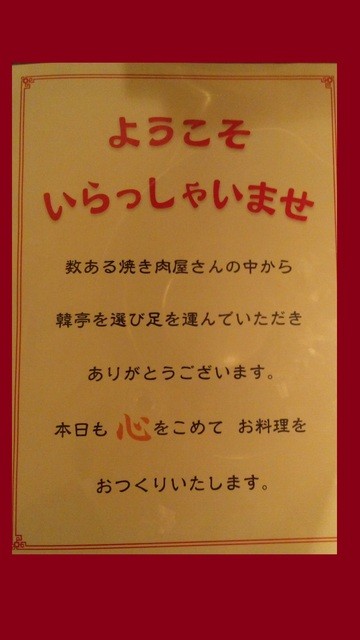 ようこそ
いらっしゃいませ
数ある焼き肉屋さんの中から
韓亭を選び足を運んでいただき
ありがとうございます。
本日も 心をこめて お料理を
おつくりいたします。